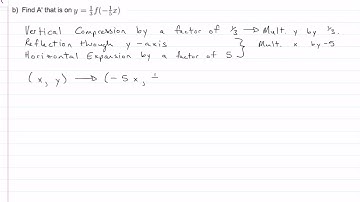 b) Find A' that is on y = 1/3 f(−1/5 x)
Vertical Compression by a factor of 1/3 → Mult. y by 1/3.
Reflection through y-axis } Mult. x by -5
Horizontal Expansion by a factor of 5
(x, y) → (-5x, 1